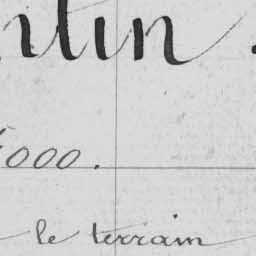 ntin.
000.
le terrain